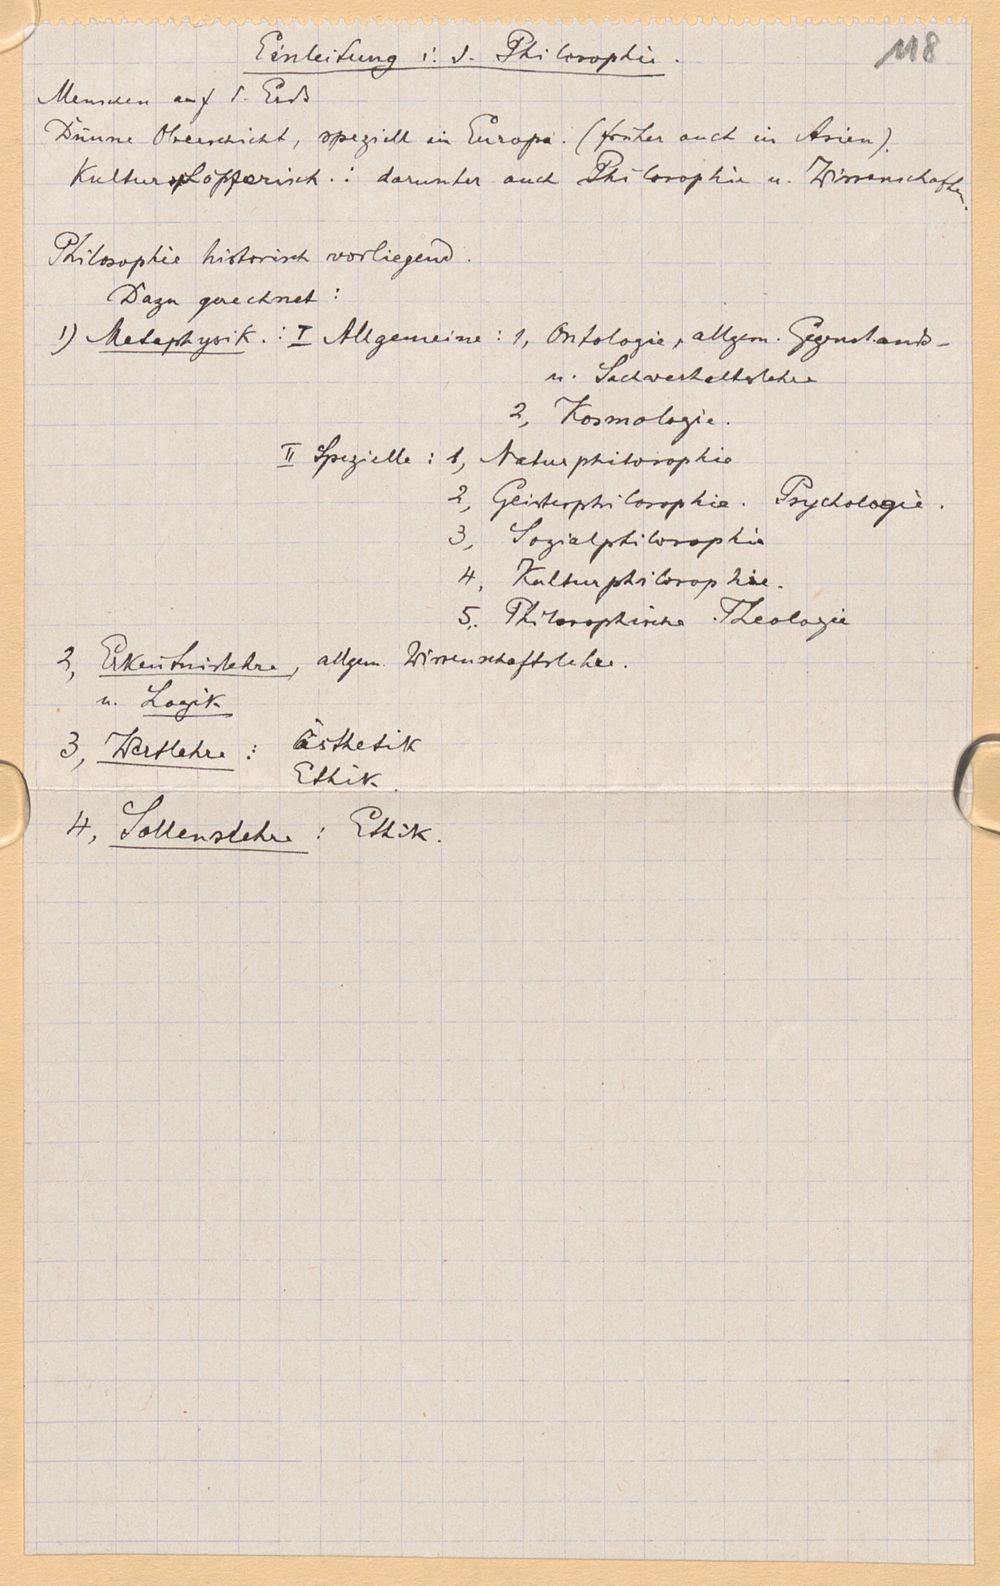 118
Einleitung i. d. Philosophie.
Menschen auf d. Erde
Dünne Oberschicht, speziell in Europa. (früher auch in Asien).
Kulturschöpferisch.: darunter auch Philosophie u. Wissenschaften.
Philosophie historisch vorliegend.
Dazu gerechnet:
1) Metaphysik.: I Allgemeine: 1, Ontologie, allgem. Gegenstands-
u. Sachverhaltslehre
2, Kosmologie.
II Spezielle: 1, Naturphilosophie
2, Geistesphilosophie. Psychologie.
3, Sozialphilosophie
4, Kulturphilosophie.
5. Philosophische Theologie
2, Erkenntnislehre, allgem. Wissenschaftslehre.
u. Logik
3, Wertlehre: Ästhetik
Ethik.
4, Sollenslehre: Ethik.